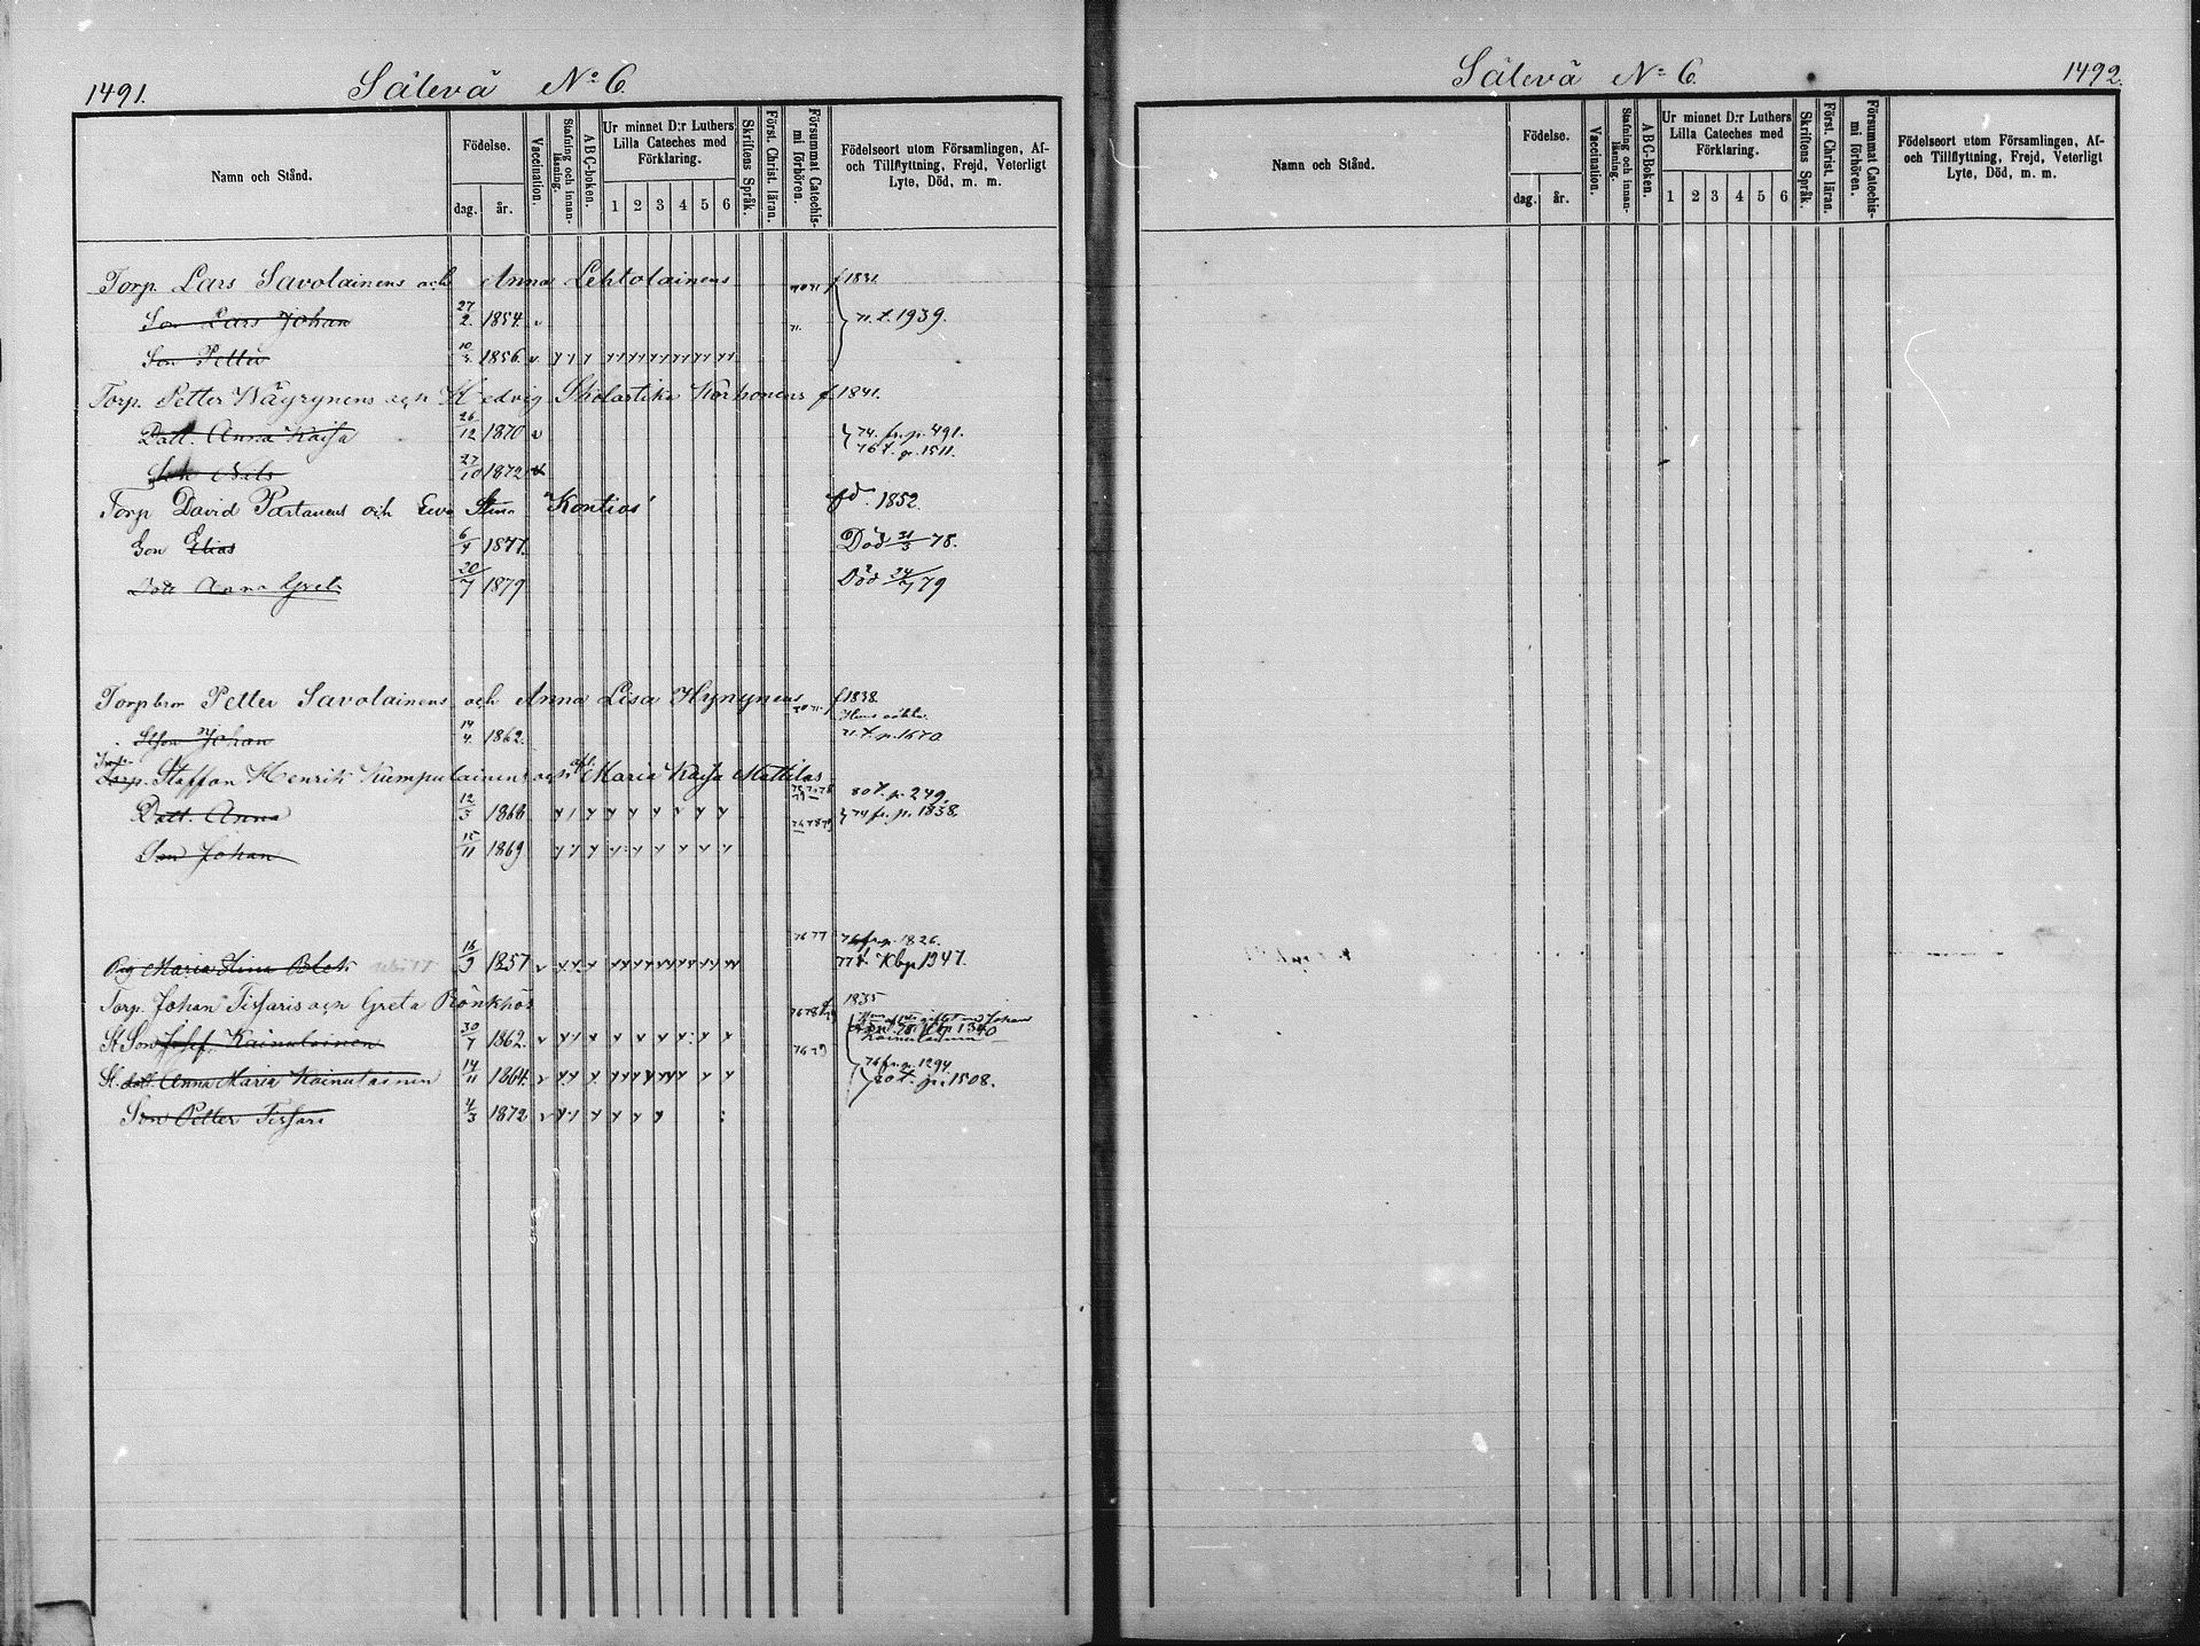 1491. Sälevä No 6.
Namn och Stånd.
Födelse.
dag. år.
Vaccination.
Stafning och innan-läsning.
A B C-boken.
Ur minnet D:r Luthers Lilla Cateches med Förklaring.
1 2 3 4 5 6
Skriftens Språk.
Först. Christ. läran.
Försummat Catechis-mi förhören.
Födelseort utom Församlingen, Af- och Tillflyttning, Frejd, Veterligt Lyte, Död, m. m.
Torp. Lars Savolainens och Anna Lehtolainens 70 71 f 1831.
Son Lars Johan 27/2. 1854. v 71. 71. t. 1939.
Son Petter 10/3. 1856. v
Torp. Petter Wäyrynens och Hedvig Skolastika Korhonens f 1841.
Dott. Anna Kaisa 26/12 1870 v 74. fr. p. 491.
76 t. p. 1511.
Son Nils 27/10 1872
Torp David Partanens och Eva Stina Kontios fd. 1852.
Son Elias 6/4 1877. Död 21/3 78.
Dott Anna Greta 20/7 1879 Död 24/7 79
Torpbror Petter Savolainens och Anna Lisa Hynynens f 1838
Son Johan 14/4. 1862. 71 t. p. 1670
Torp. Staffan Henrik Kumpulainens och Maria Kaisa Mattilas
80 t. p. 249.
Dott. Anna 12/5 1866 74 fr. p. 1838.
Son Johan 15/11 1869
76 77 76 fr. p. 1826.
Pig Maria Stina Blek 16/9 1857 v 77 t. Kbp 1947.
Torp. Johan Tissaris och Greta Rönkkös 1835
St Son Josef Kainulainen 30/7 1862. v
76 79 76 fr. p. 1294.
St. dott Anna Maria Kainulainen 14/11 1864. v 80 t. p. 1508.
Son Petter Tissari 4/3 1872 v
Sälevä No 6. 1492.
Namn och Stånd.
Födelse.
dag. år.
Vaccination.
Stafning och innan-läsning.
A B C-Boken.
Ur minnet D:r Luthers Lilla Cateches med Förklaring.
1 2 3 4 5 6
Skriftens Språk.
Först. Christ. läran.
Försummat Catechis-mi förhören.
Födelseort utom Församlingen, Af- och Tillflyttning, Frejd, Veterligt Lyte, Död, m. m.